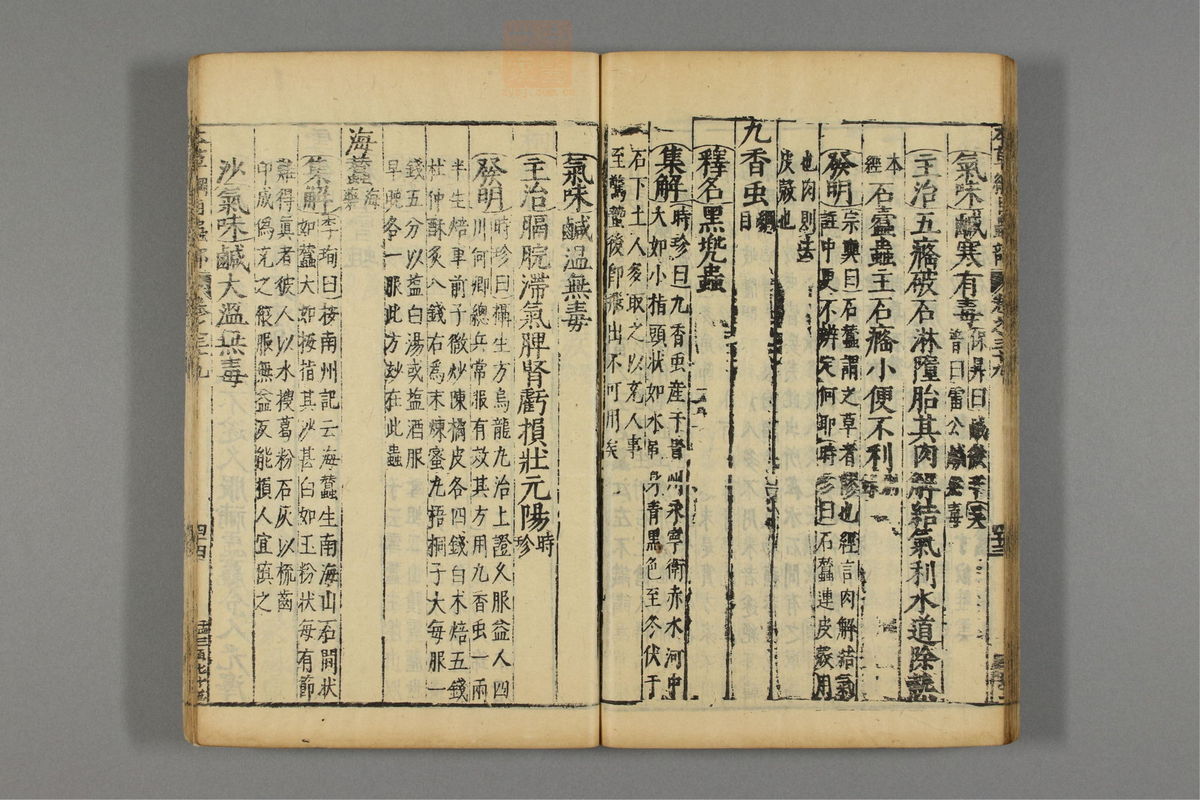 氣味鹹寒有毒保昇曰鹹
普曰雷公鹹無毒
主治五癃破石淋墮胎其肉解結氣利水道除熱
本經石蠶蟲主石癃小便不利
發明宗奭曰石蠶謂之草者謬也經言肉解結氣
註中更不辨定何耶時珍曰石蠶連皮殼用
也肉則去
皮殼也
九香虫綱目
釋名黑兜蟲
集解時珍曰九香虫產于貴州永寧衛赤水河中
大如小指頭狀如水黽身青黑色至冬伏于
石下土人多取之以充人事
至驚蟄後即飛出不可用矣
氣味鹹溫無毒
主治膈脘滯氣脾腎虧損壯元陽時珍
發明時珍曰攝生方烏龍丸治上證久服益人四
川何卿總兵常服有效其方用九香虫一兩
半生焙車前子微炒陳橘皮各四錢白朮焙五錢
杜仲酥炙八錢右為末煉蜜丸梧桐子大每服一
錢五分以鹽白湯或鹽酒服
早晚各一服此方妙在此蟲
海蠶海藥
集解李珣曰按南州記云海蠶生南海山石間狀
如蠶大如拇指其沙甚白如玉粉狀每有節
難得真者彼人以水搜葛粉石灰以梳齒
印成為充之縱服無益反能損人宜慎之
沙氣味鹹大溫無毒